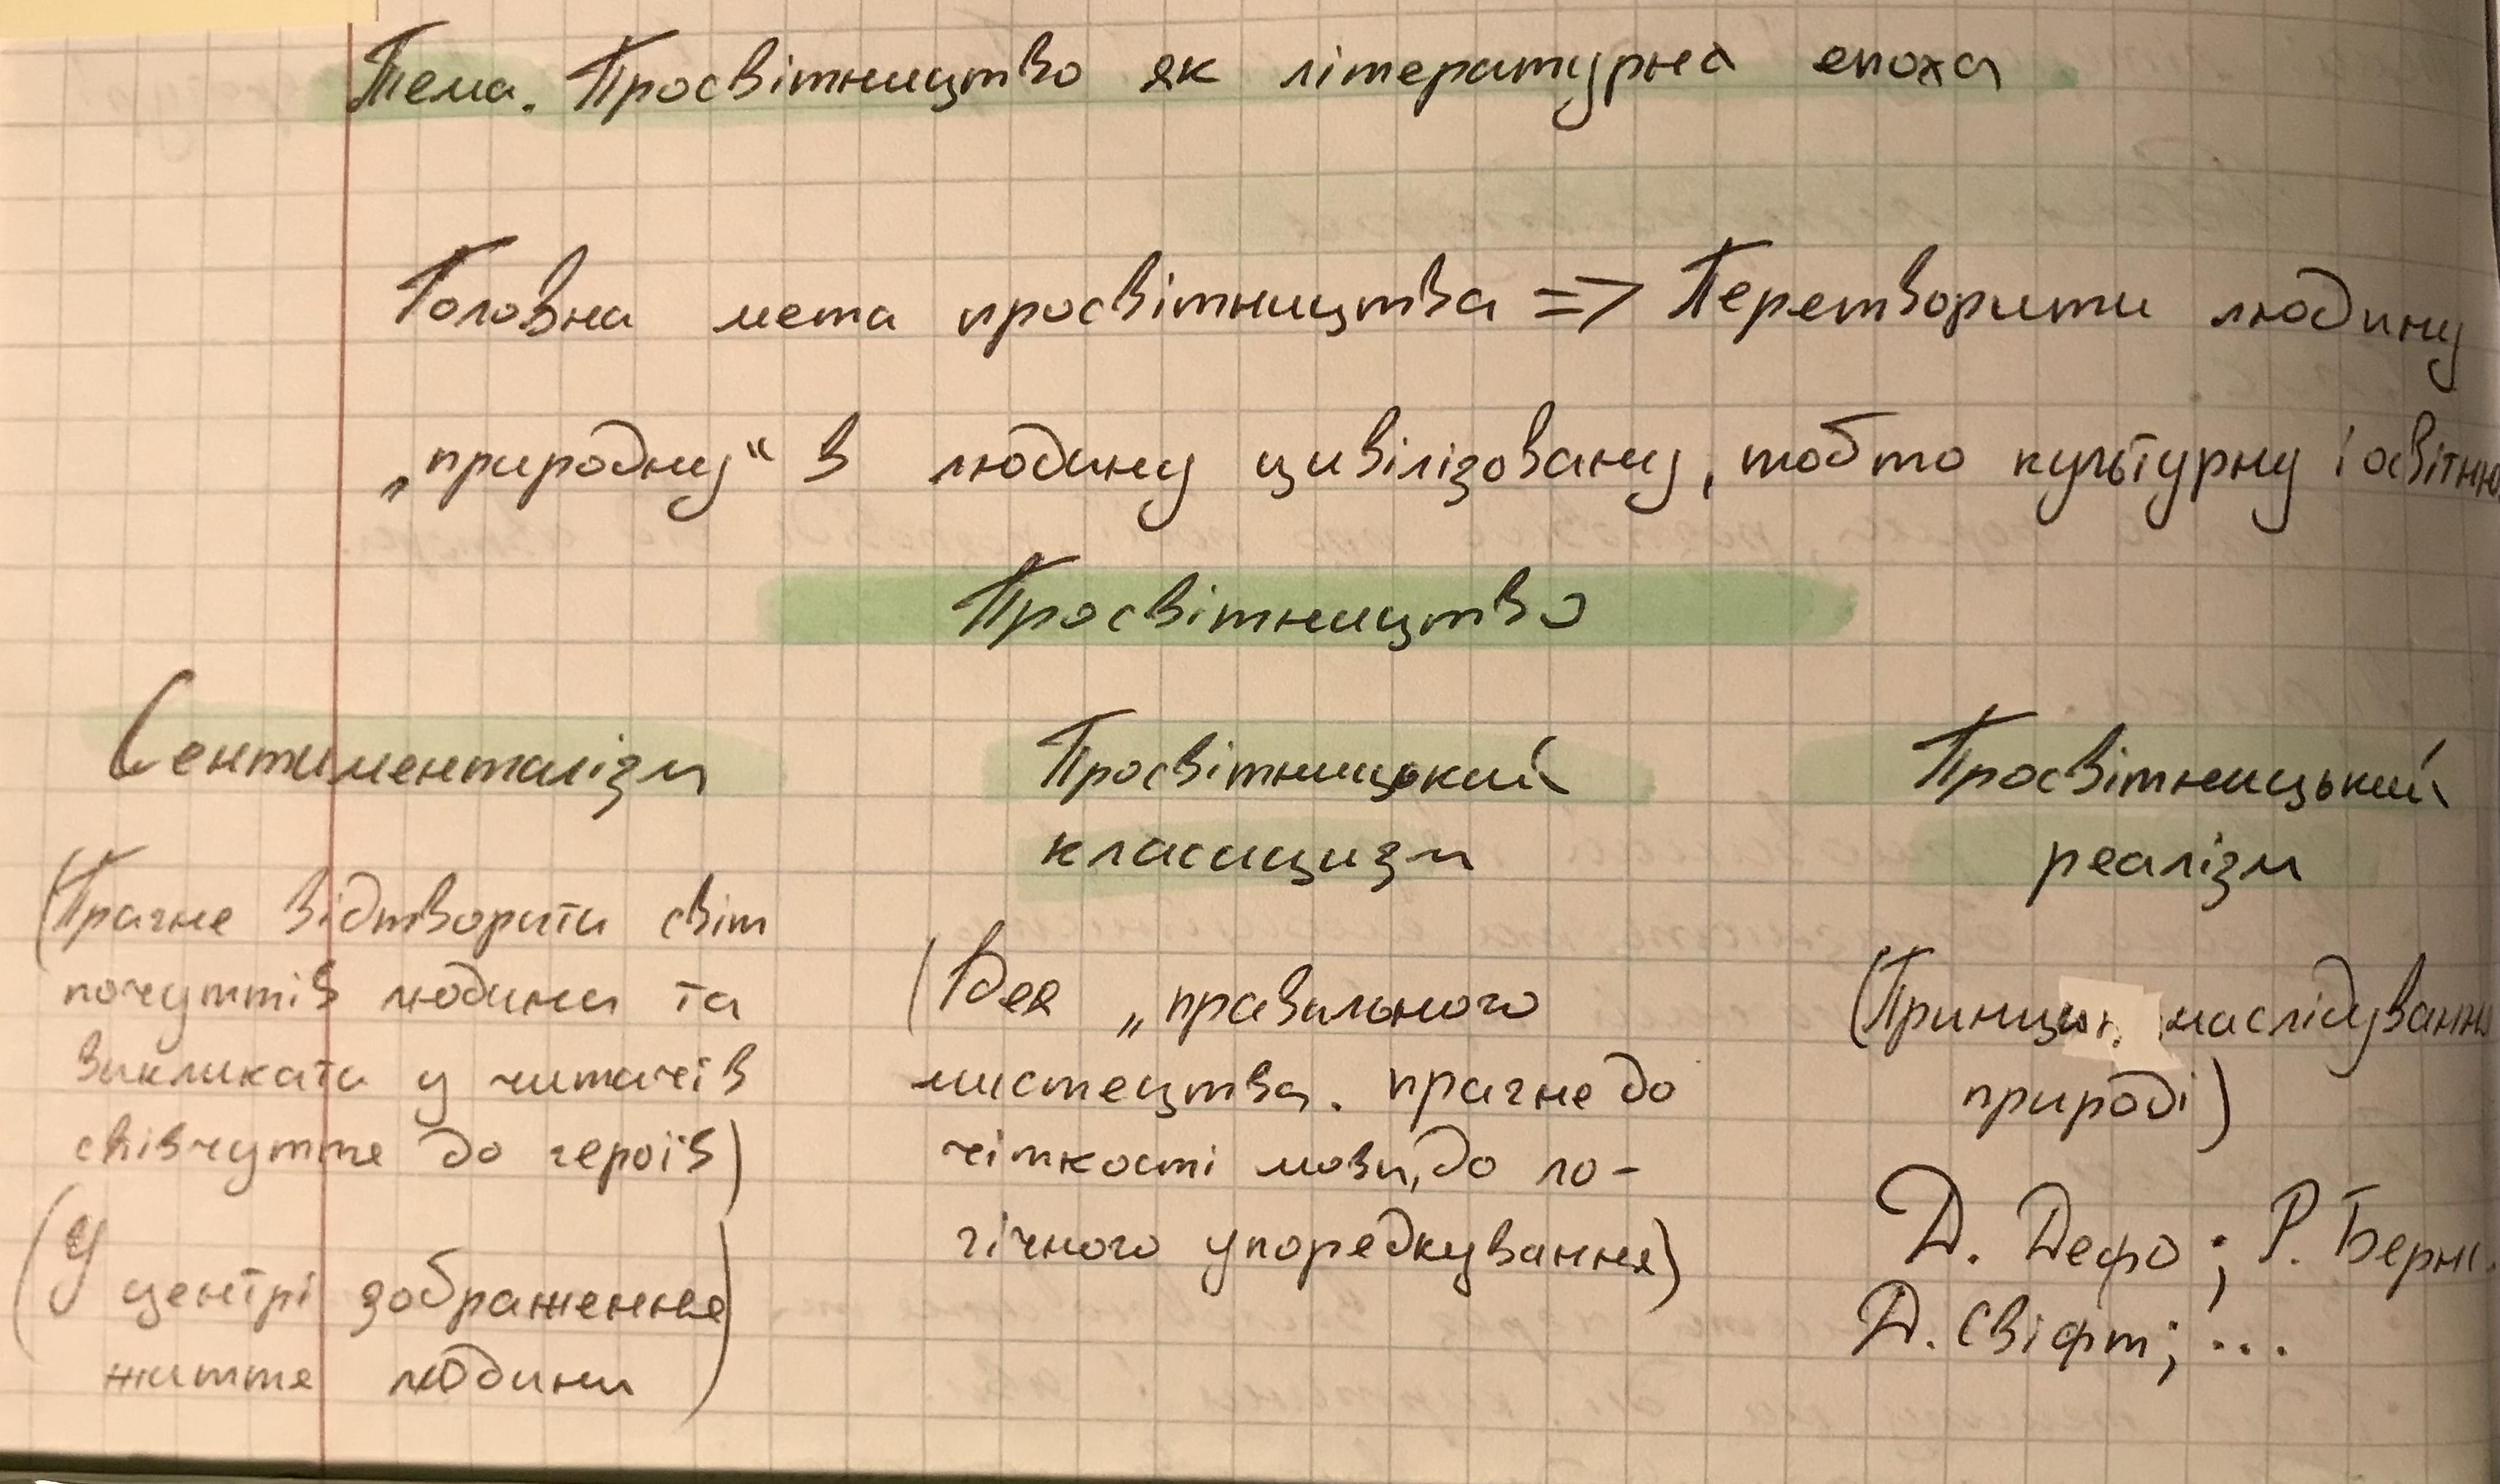 Тема. Просвітництво як літературна епоха
Головна мета просвітництва => Перетворити людину
„природну“ в людину цивілізовану, тобто культурну і освітню
Просвітництво
Сентименталізм
(Прагне відтворити світ
почуттів людини та
викликати у читачів
співчуття до героїв)
(У центрі зображення
життя людини)
Просвітницький
класицизм
(Ідея „правильного
мистецтва. прагне до
чіткості мови, до ло-
гічного упорядкування)
Просвітницький
реалізм
(Принцип наслідування
природі)
Д. Дефо; Р. Бернс.
Д. Свіфт; ...